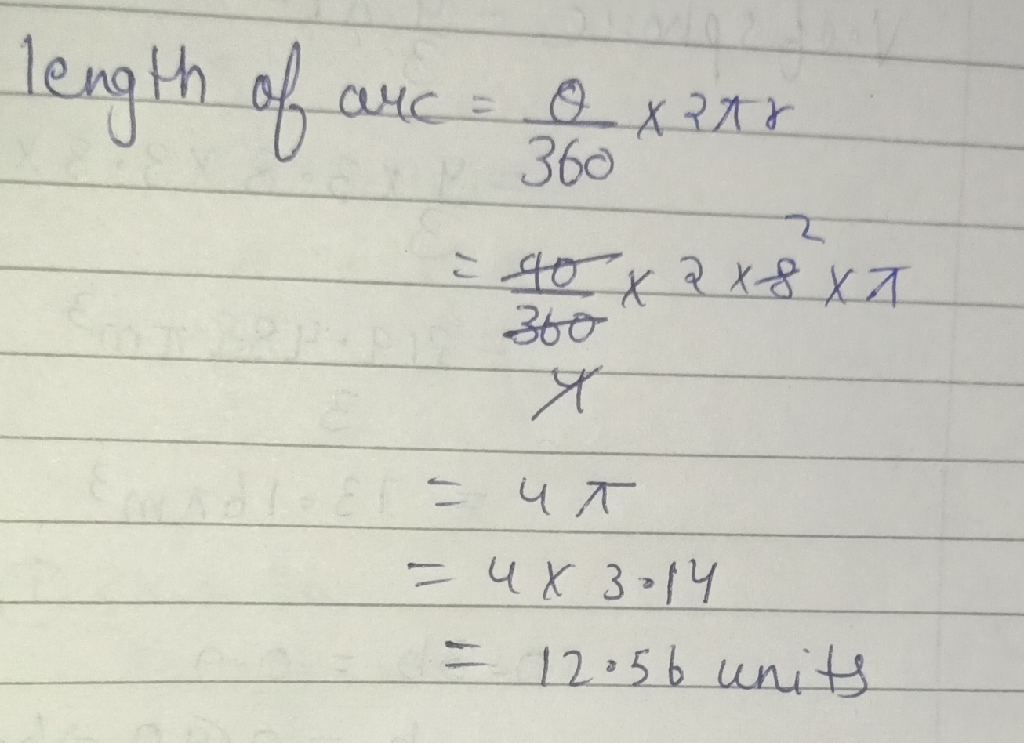 length of arc = θ/360 × 2πr
= 90/360 × 2 × 8 × π
2
4
= 4π
= 4 × 3.14
= 12.56 units